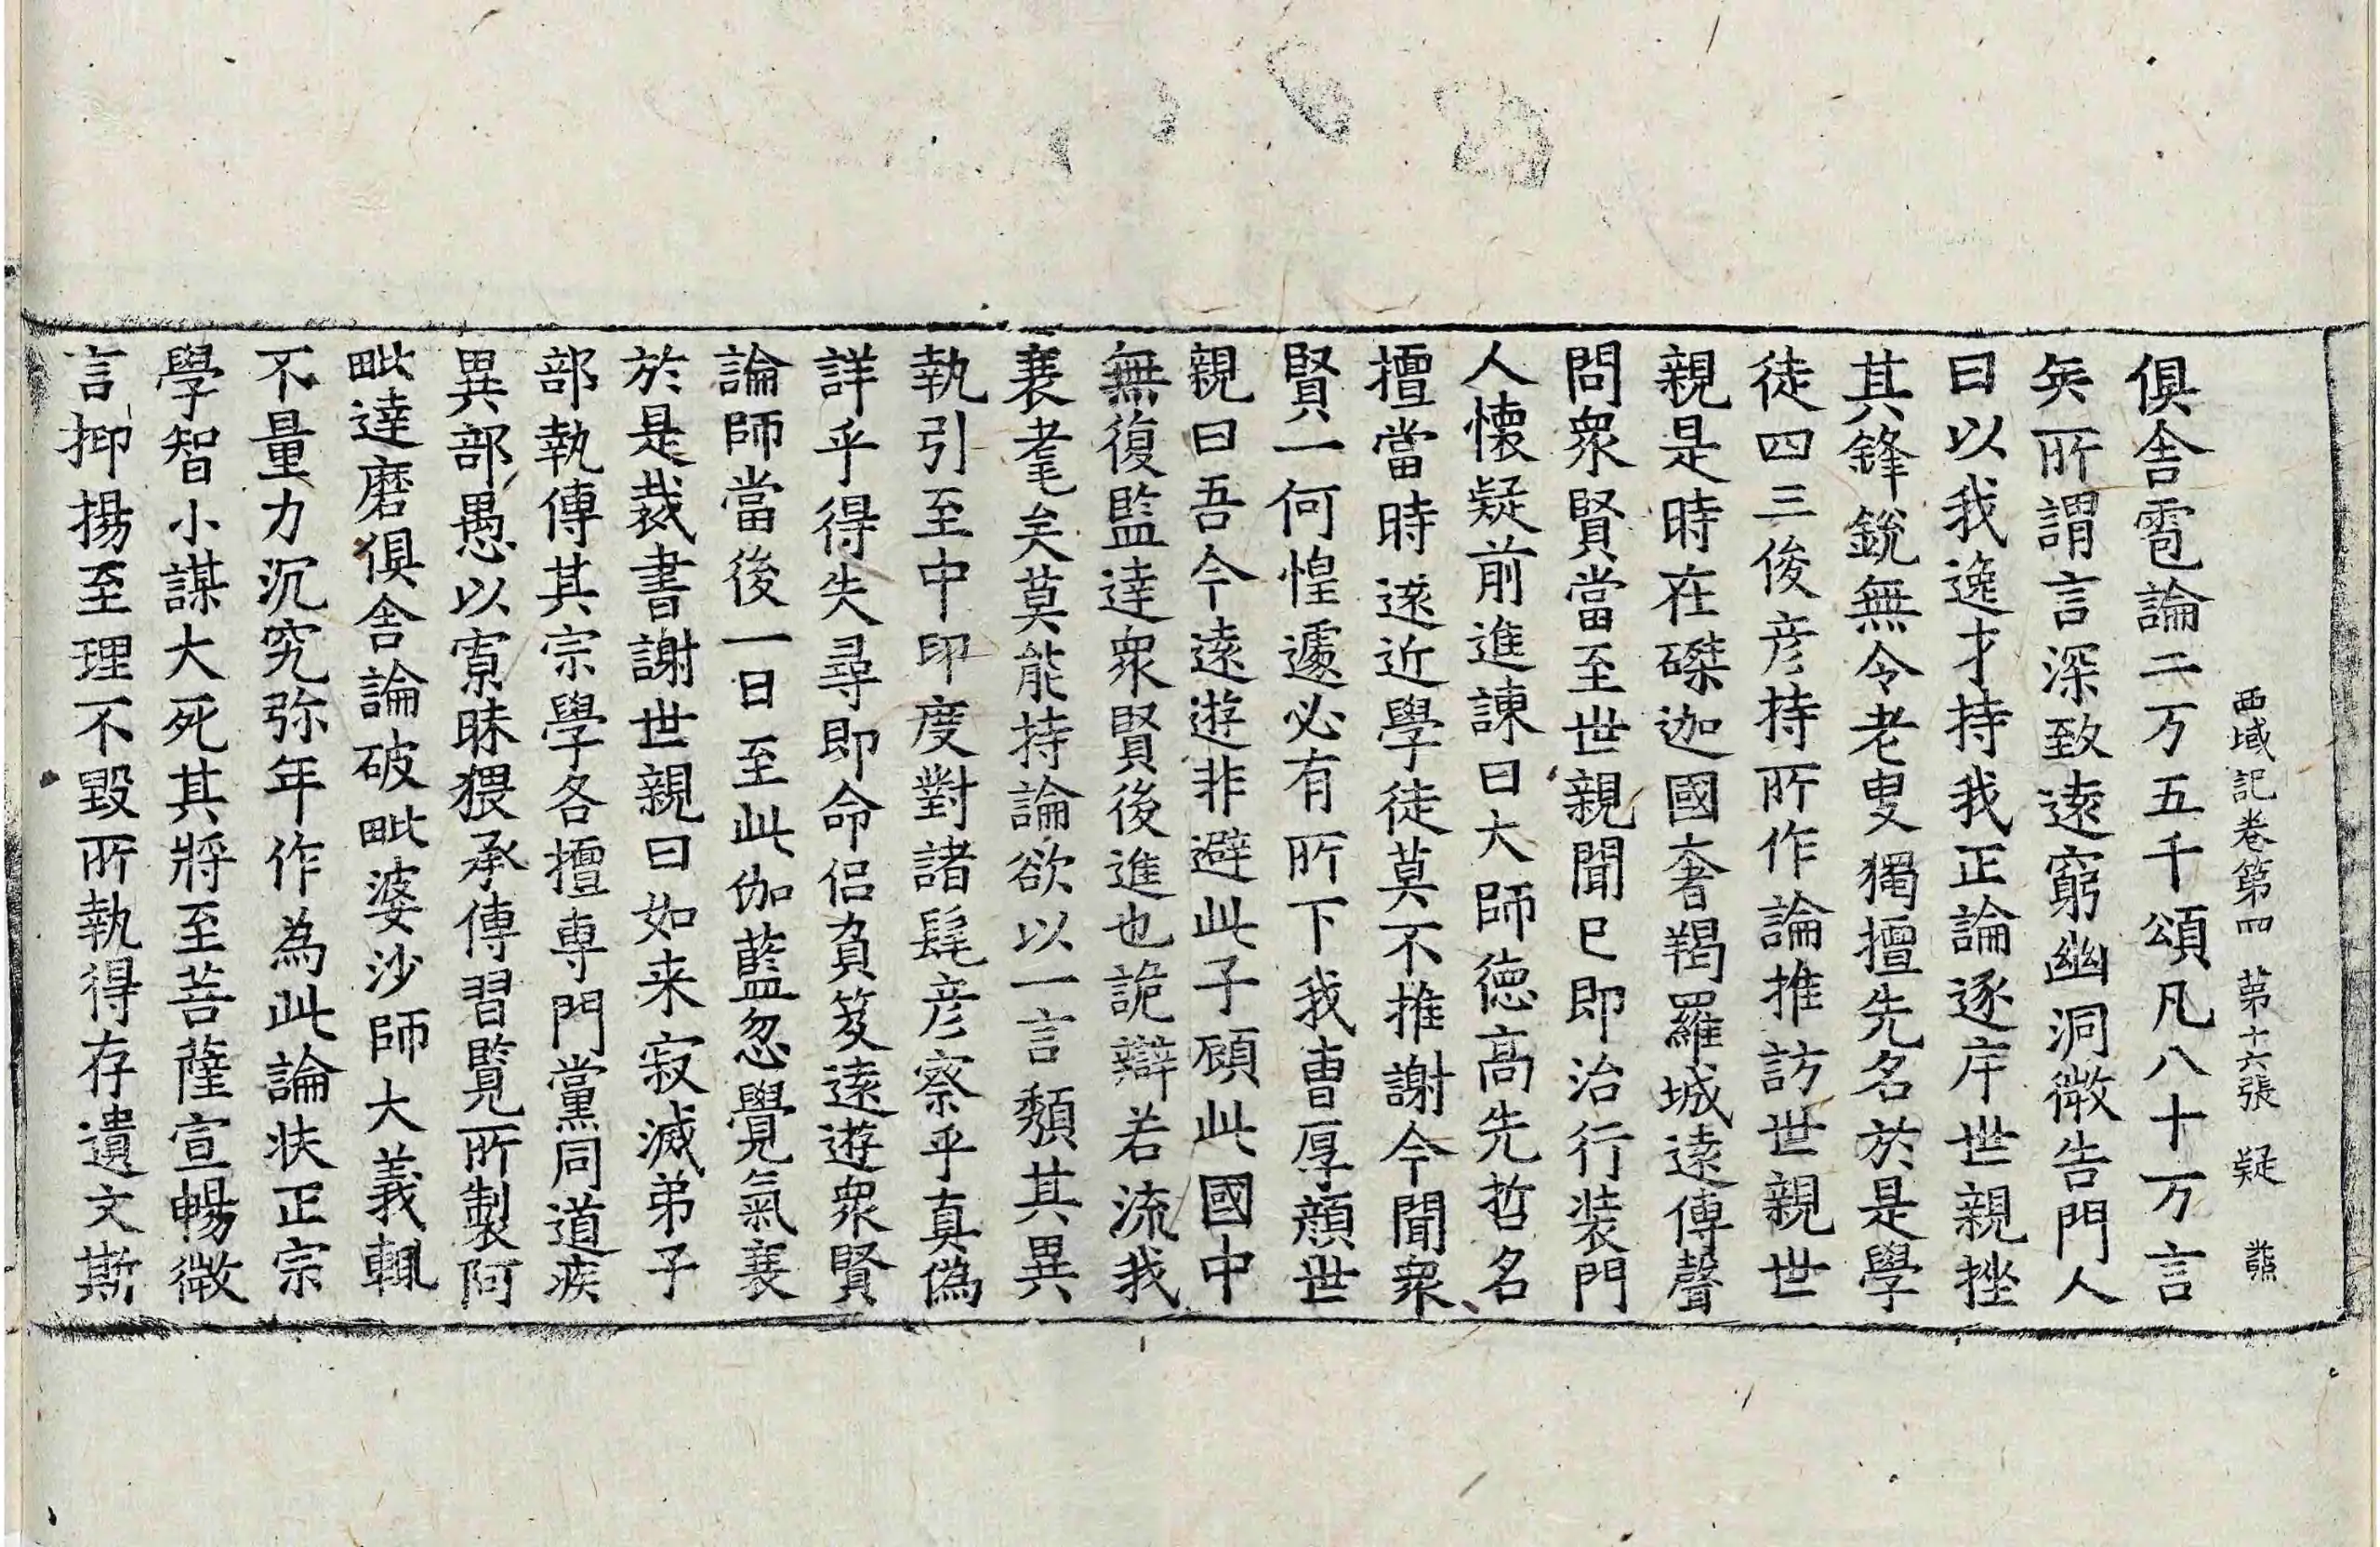 西域記卷第四 第十六張 疑
俱舍雹論二万五千頌凡八十万言
矣所謂言深致遠窮幽洞微告門人
曰以我逸才持我正論逐斥世親挫
其鋒銳無令老叟獨擅先名於是學
徒四三俊彥持所作論推訪世親世
親是時在磔迦國奢羯羅城遠傳聲
問衆賢當至世親聞已即治行装門
人懷疑前進諫曰大師德高先哲名
擅當時遠近學徒莫不推謝今聞衆
賢一何惶遽必有所下我曹厚顔世
親曰吾今遠遊非避此子顧此國中
無復監達衆賢後進也詭辯若流我
衰耄矣莫能持論欲以一言頹其異
執引至中印度對諸髦彥察乎真偽
詳乎得失尋即命侶負笈遠遊衆賢
論師當後一日至此伽藍忽覺氣衰
於是裁書謝世親曰如来寂滅弟子
部執傳其宗學各擅專門黨同道疾
異部愚以寡昧猥承傳習覧所製阿
毗達磨俱舍論破毗婆沙師大義輒
不量力沉究弥年作為此論扶正宗
學智小謀大死其將至菩薩宣暢微
言抑揚至理不毀所執得存遺文斯